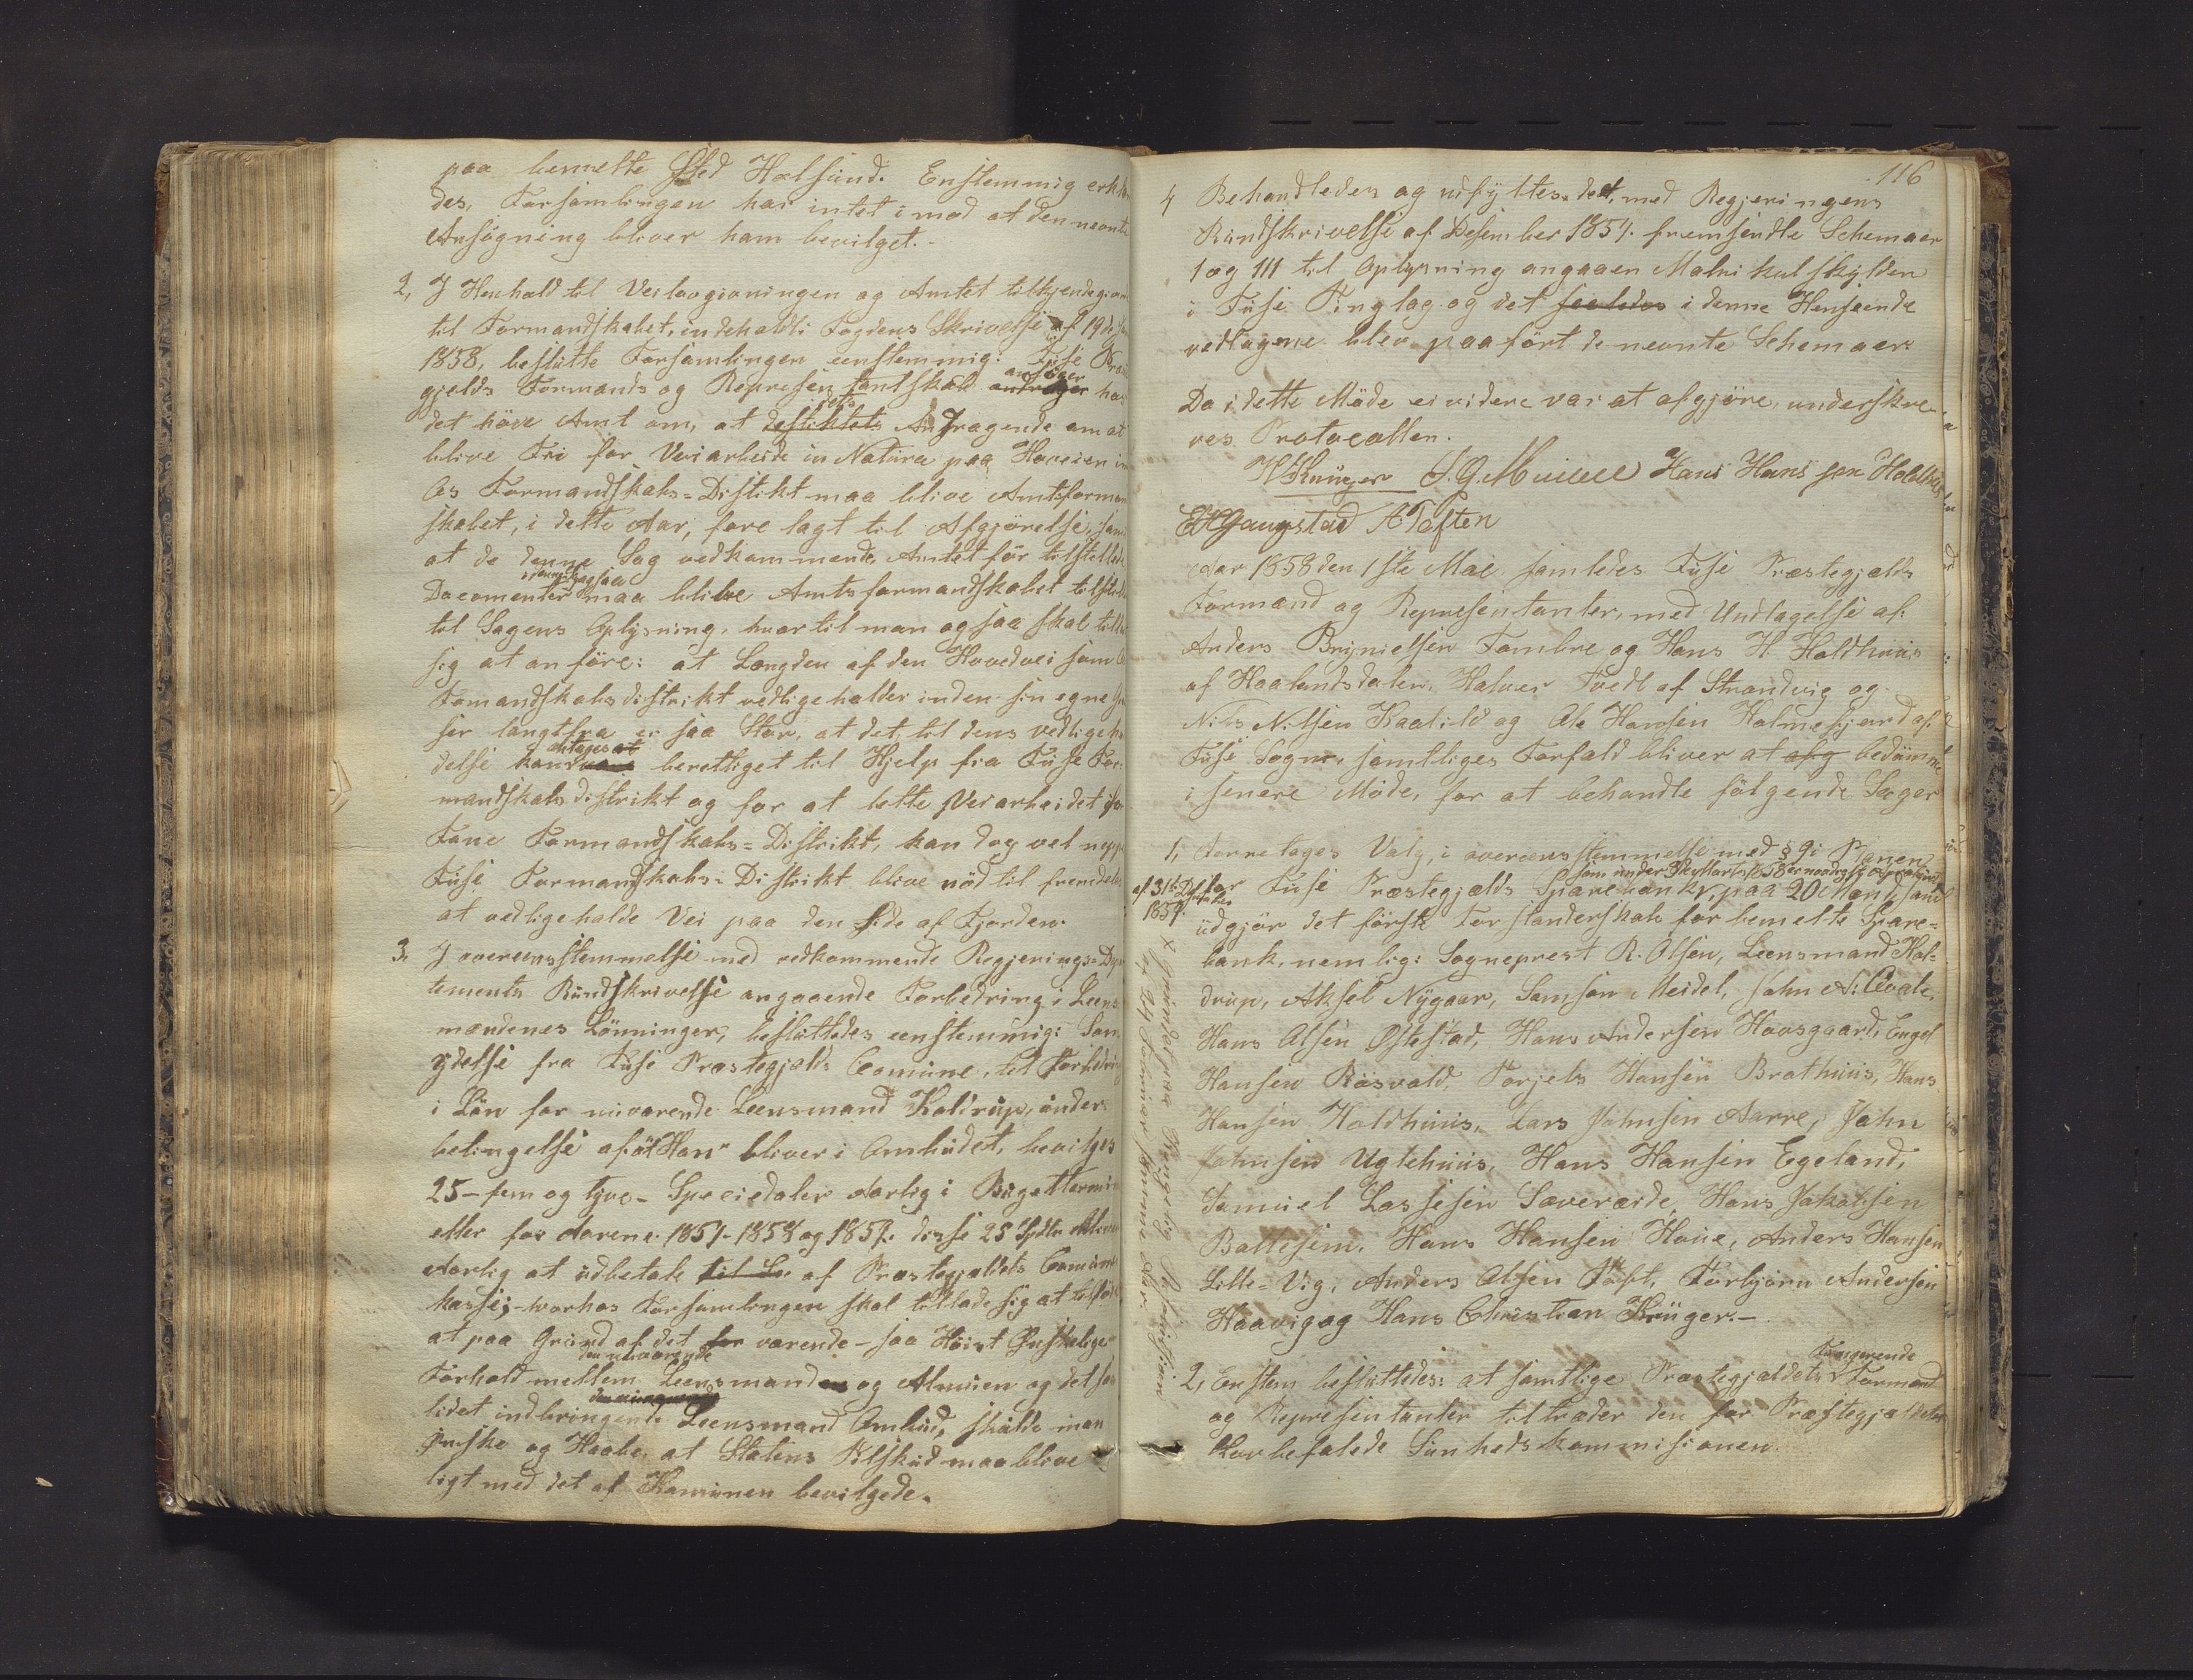 paa bemelte Sted Halsund. Enstemmig erkl
des, Forsamlingen har intet imod at den nevnte
Ansögning bliver ham bevilget.
2, I Henhold til Veilovgivningen og Amtet tilkjendegiven
til Formandskabet, indeholdt i Fogdens Skrivelse af 19de
1858, besluttes Forsamlingen eenstemmig: Fuse Præ
gjelds Formands og Representantskab ansöger hos
det höie Amt om, at dets Andragende om at
blive Fri for Veiarbeide in Natura paa Hoveien i
Os Formandskabs=Distrikt maa blive Amtsforman
skabet, i dette Aar, fore lagt til Afgjörelse, sam
at de denne Sag vedkommende Amtet för tilstillede
Documenter maa blive Amtsformandskabet tilstillet
til Sagens Oplysning, hvortil man og saa skal tillade
sig at anföre: at Længden af den Hovedvei som Os
Formandskabsdistrikt vedligeholder inden sin egne
ser langtfra er saa Stor, at det til dens vedligehol
delse kan antages at berettiget til Hjelp fra Fuse For=
mandskabsdistrikt og for at lette Veiarbeidet for
Fane Formandskabs=Distrikt, kan dog vel neppe
Fuse Formandskabs=Distrikt blive nöd til fremdeles
at vedligeholde Vei paa den Side af Fjorden.
3. I overeensstemmelse med vedkommende Regjerings=Depar
tements Rundskrivelse angaaende Forbedring i Leens
mændenes Lönninger, besluttedes eenstemmig: Som
ydelse fra Fuse Præstegjelds Comune, til Forbedring
i Lön for nuværende Leensmand Koldrup, under
betingelse af at Han bliver i Ombudet, bevilges
25 – fem og tyve – Speciedaler Aarlig i Bugettermin
eller for Aarene 1857- 1858 og 1859. disse 25 Spdlr bliver
Aarlig at udbetale til Ln af Præstegjeldets Comune
kasse; hvorhos Forsamlingen skal tillade sig at tilföie
at paa Grund af det for værende – saa Höist Ønskelige
Forhold mellem den nuværende Leensmand og Almuen og det saa
lidet indbringende Leensmand Ombud, skulde man
Ønske og Haabe, at Statens Tilskud maa blive
ligt med det af Komunen bevilgede.
116
4 Behandledes og udfyltes det, med Regjeringens
Rundskrivelse af Desember 1857. fremsendte Schemaer
1 og 111 til Oplysning angaaen Matrikulskylden
i Fuse Tinglag og det saaledes i denne Henseende
vedtagne blev paafört de nevnte Schemaer.
Da i dette Möde ei videre var at afgjöre, underskre=
ves Protocollen.
H Krüger Hans Hans sen Holdhuus
Gaugstad A Toften
Aar 1858 den 1ste Mai samledes Fuse Præstegjelds
Formænd og Representanter, med Undtagelse af:
Anders Brynielsen Tombre og Hans H. Holdhuus
af Haalandsdalen, Halvor Tvedt af Strandvig og
Nils Nilsen Kaalild og Ole Hansen Holmefjord af
Fuse Sogn, samtliges Forfald bliver at afg bedömme
i senere Möde, for at behandle fölgende Sager
1, Foretages Valg, i overeensstemmelse med § 9 i Planen
som under 3die Marts 1858 er naadigst approberet
for Fuse Præstegjelds Sparebank, paa 20 Mand, som
af 31te Desember 1857.
udgjör det förste Forstanderskab for bemelte Spare=
bank, nemlig: Sogneprest R. Olsen, Leensmand Kol=
drup, Aksel Nygaar, Samson Meidel, John N. Evale,
Hans Olsen Østestad, Hans Andersen Haavsgaard, Engel
Hansen Röisvald, Torjels Hansen Brathuus, Hans
Hansen Holdhuus, Lars Johnsen Aarre, John
Johnsen Ugtehuus, Hans Hansen Egeland,
Samuel Lassesen Sæveraide, Hans Jakobsen
Baltesem, Hans Hansen Hovie, Anders Hansen
Lille=Vig, Anders Olsen Toft, Torbjörn Andersen
Haavig og Hans Christian Krüger.–
x grundet paa Kongelig Resolution
af 24 Februar samme Aar.
2, Eenstem besluttedes: at samtlige Præstegjeldets Fungerende Formænd
og Representanter tiltræder den for Præstegjeldet
Lovbefalede Sundhedskommisionen.